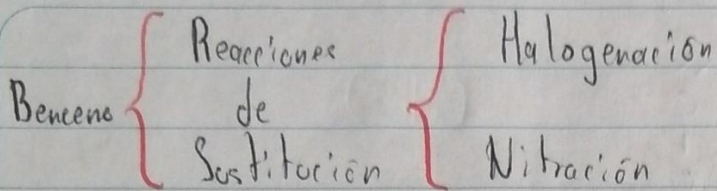 Benceno
Reacciones
de
Sustitución
Halogenación
Nitración